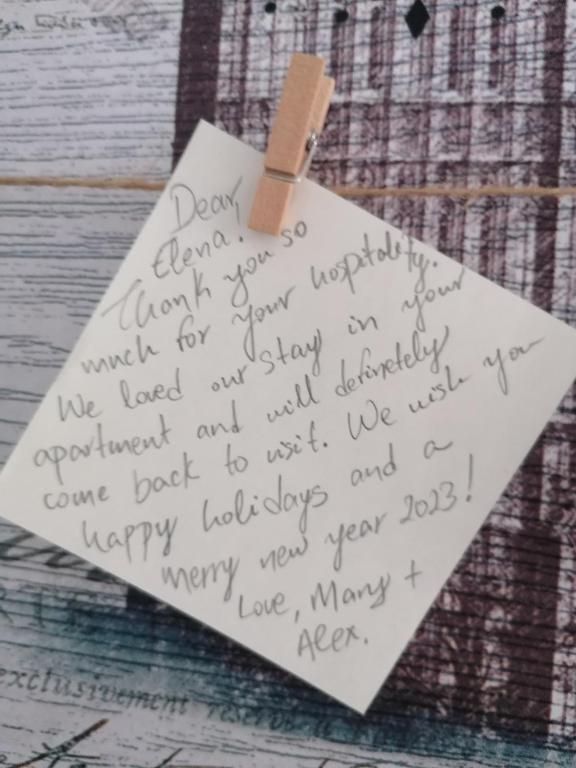 Dear,
Elena!
Thank you so
much for your hospitality.
We loved our stay in your
apartment and will definetely
come back to visit. We wish you
happy holidays and a
merry new year 2023!
Love, Mary +
Alex.
exclusivement